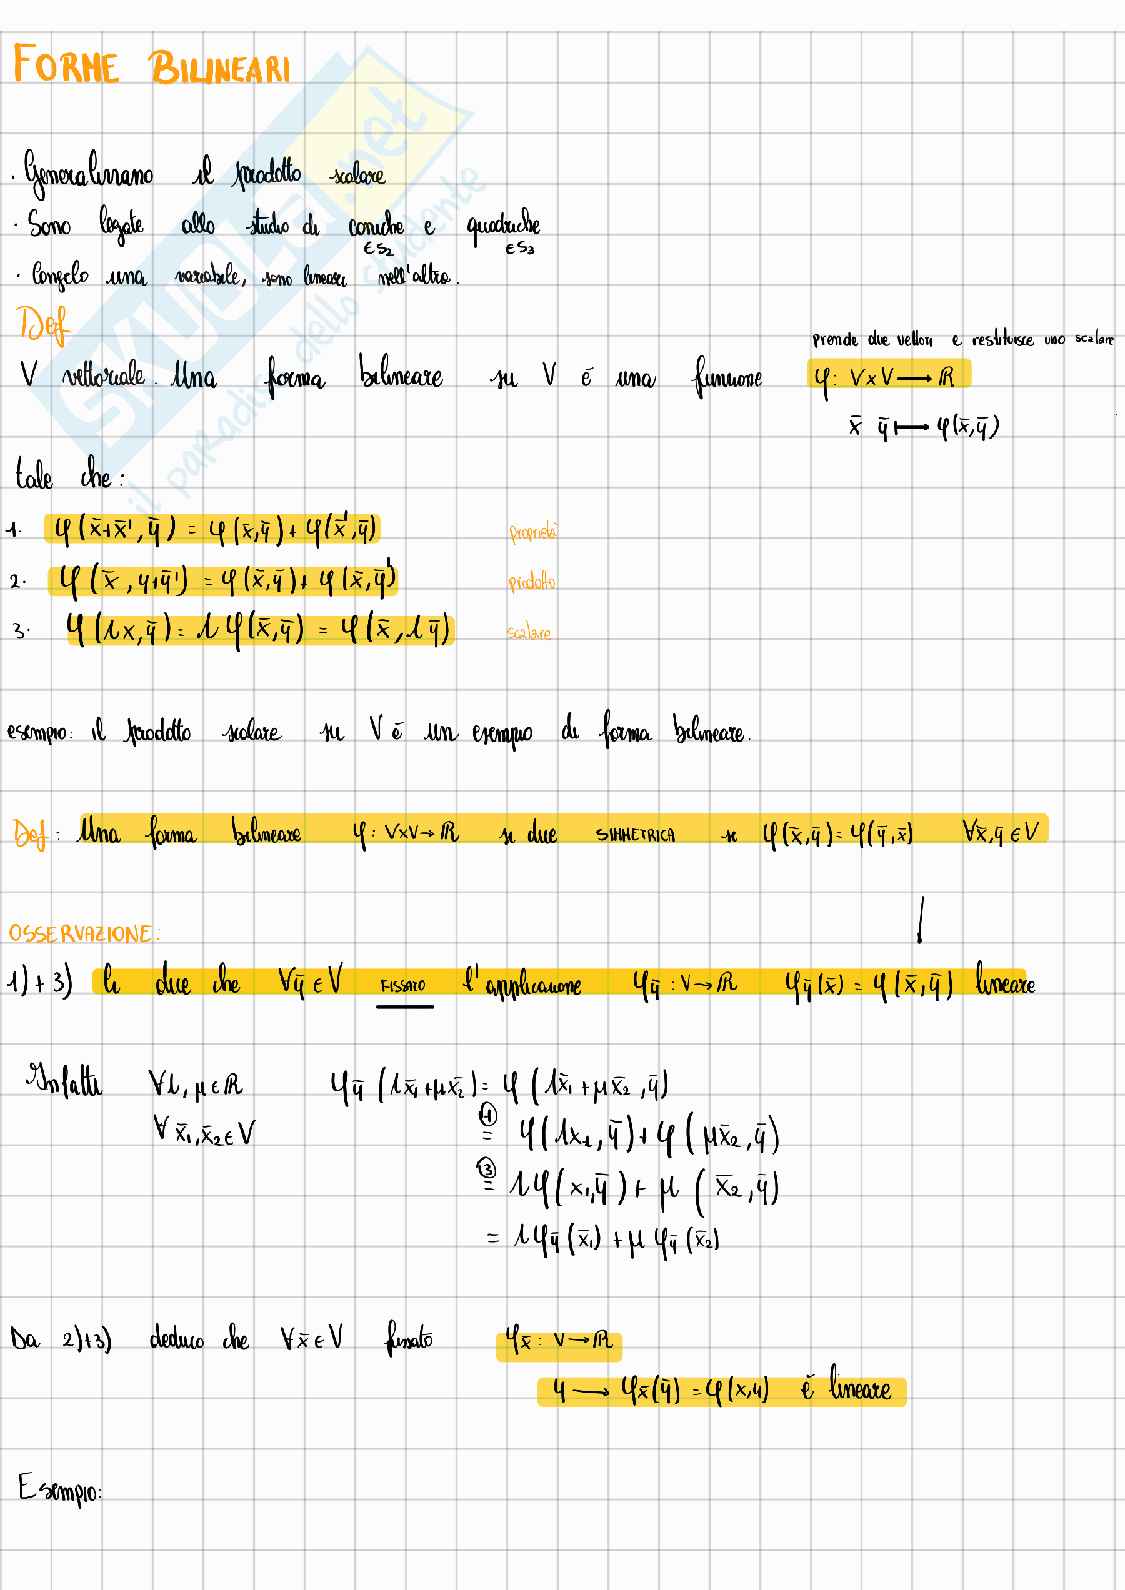 FORME BILINEARI
· Generalizzano il prodotto scalare
· Sono legate allo studio di coniche e quadriche
∈S₂ ∈S₃
· Congelo una variabile, sono lineari nell'altra.
Def
prende due vettori e restituisce uno scalare
V vettoriale. Una forma bilineare su V è una funzione φ: V×V⟶ℝ
x̄ ȳ ⟼ φ(x̄,ȳ)
tale che:
1. φ(x̄+x̄',ȳ) = φ(x̄,ȳ) + φ(x̄',ȳ) proprietà
2. φ(x̄, y+ȳ') = φ(x̄,ȳ) + φ(x̄,ȳ') prodotto
3. φ(λx,ȳ) = λφ(x̄,ȳ) = φ(x̄,λȳ) scalare
esempio: il prodotto scalare su V è un esempio di forma bilineare.
Def: Una forma bilineare φ: V×V→ℝ si dice SIMMETRICA se φ(x̄,ȳ) = φ(ȳ,x̄) ∀x̄,ȳ ∈ V
OSSERVAZIONE:
1)+3) Ci dice che ∀ȳ ∈ V FISSATO l'applicazione φȳ : V→ℝ φȳ(x̄) = φ(x̄,ȳ) lineare
Infatti ∀λ, μ ∈ ℝ φȳ(λx̄₁+μx̄₂) = φ(λx̄₁+μx̄₂,ȳ)
∀ x̄₁,x̄₂ ∈ V ①= φ(λx₁,ȳ) + φ(μx̄₂,ȳ)
③= λφ(x₁,ȳ) + μ (x̄₂,ȳ)
= λφȳ(x̄₁) + μφȳ(x̄₂)
Da 2)+3) deduco che ∀x̄ ∈ V fissato φx̄ : V→ℝ
y ⟶ φx̄(ȳ) = φ(x,y) è lineare
Esempio:
SKUOLA.net
il paradiso dello studente